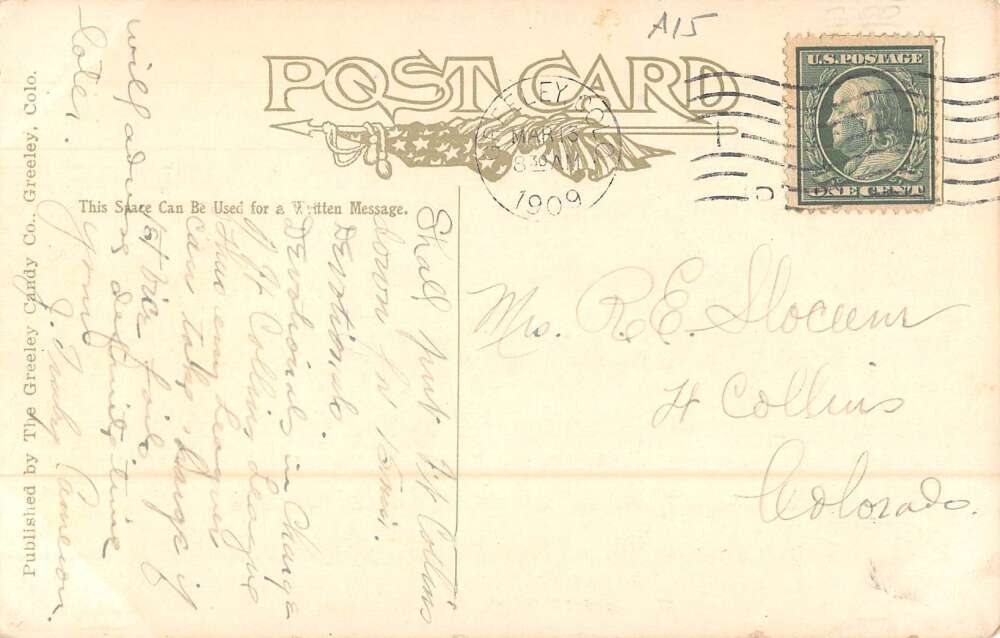 A15
POST CARD
U.S. POSTAGE
ONE CENT
GREELEY, COLO.
MAR 13
8 30 AM
1909
This Space Can Be Used for a Written Message.
Published by The Greeley Candy Co., Greeley, Colo.
Shall put Ft Collins
down for 15 min.
Devotionals.
Devotionals in Charge
of Ft Collins League
Can take charge if
will advise definite time
later.
yours
J. Cameron.
Mrs. R. E. Slocum
Ft Collins
Colorado.